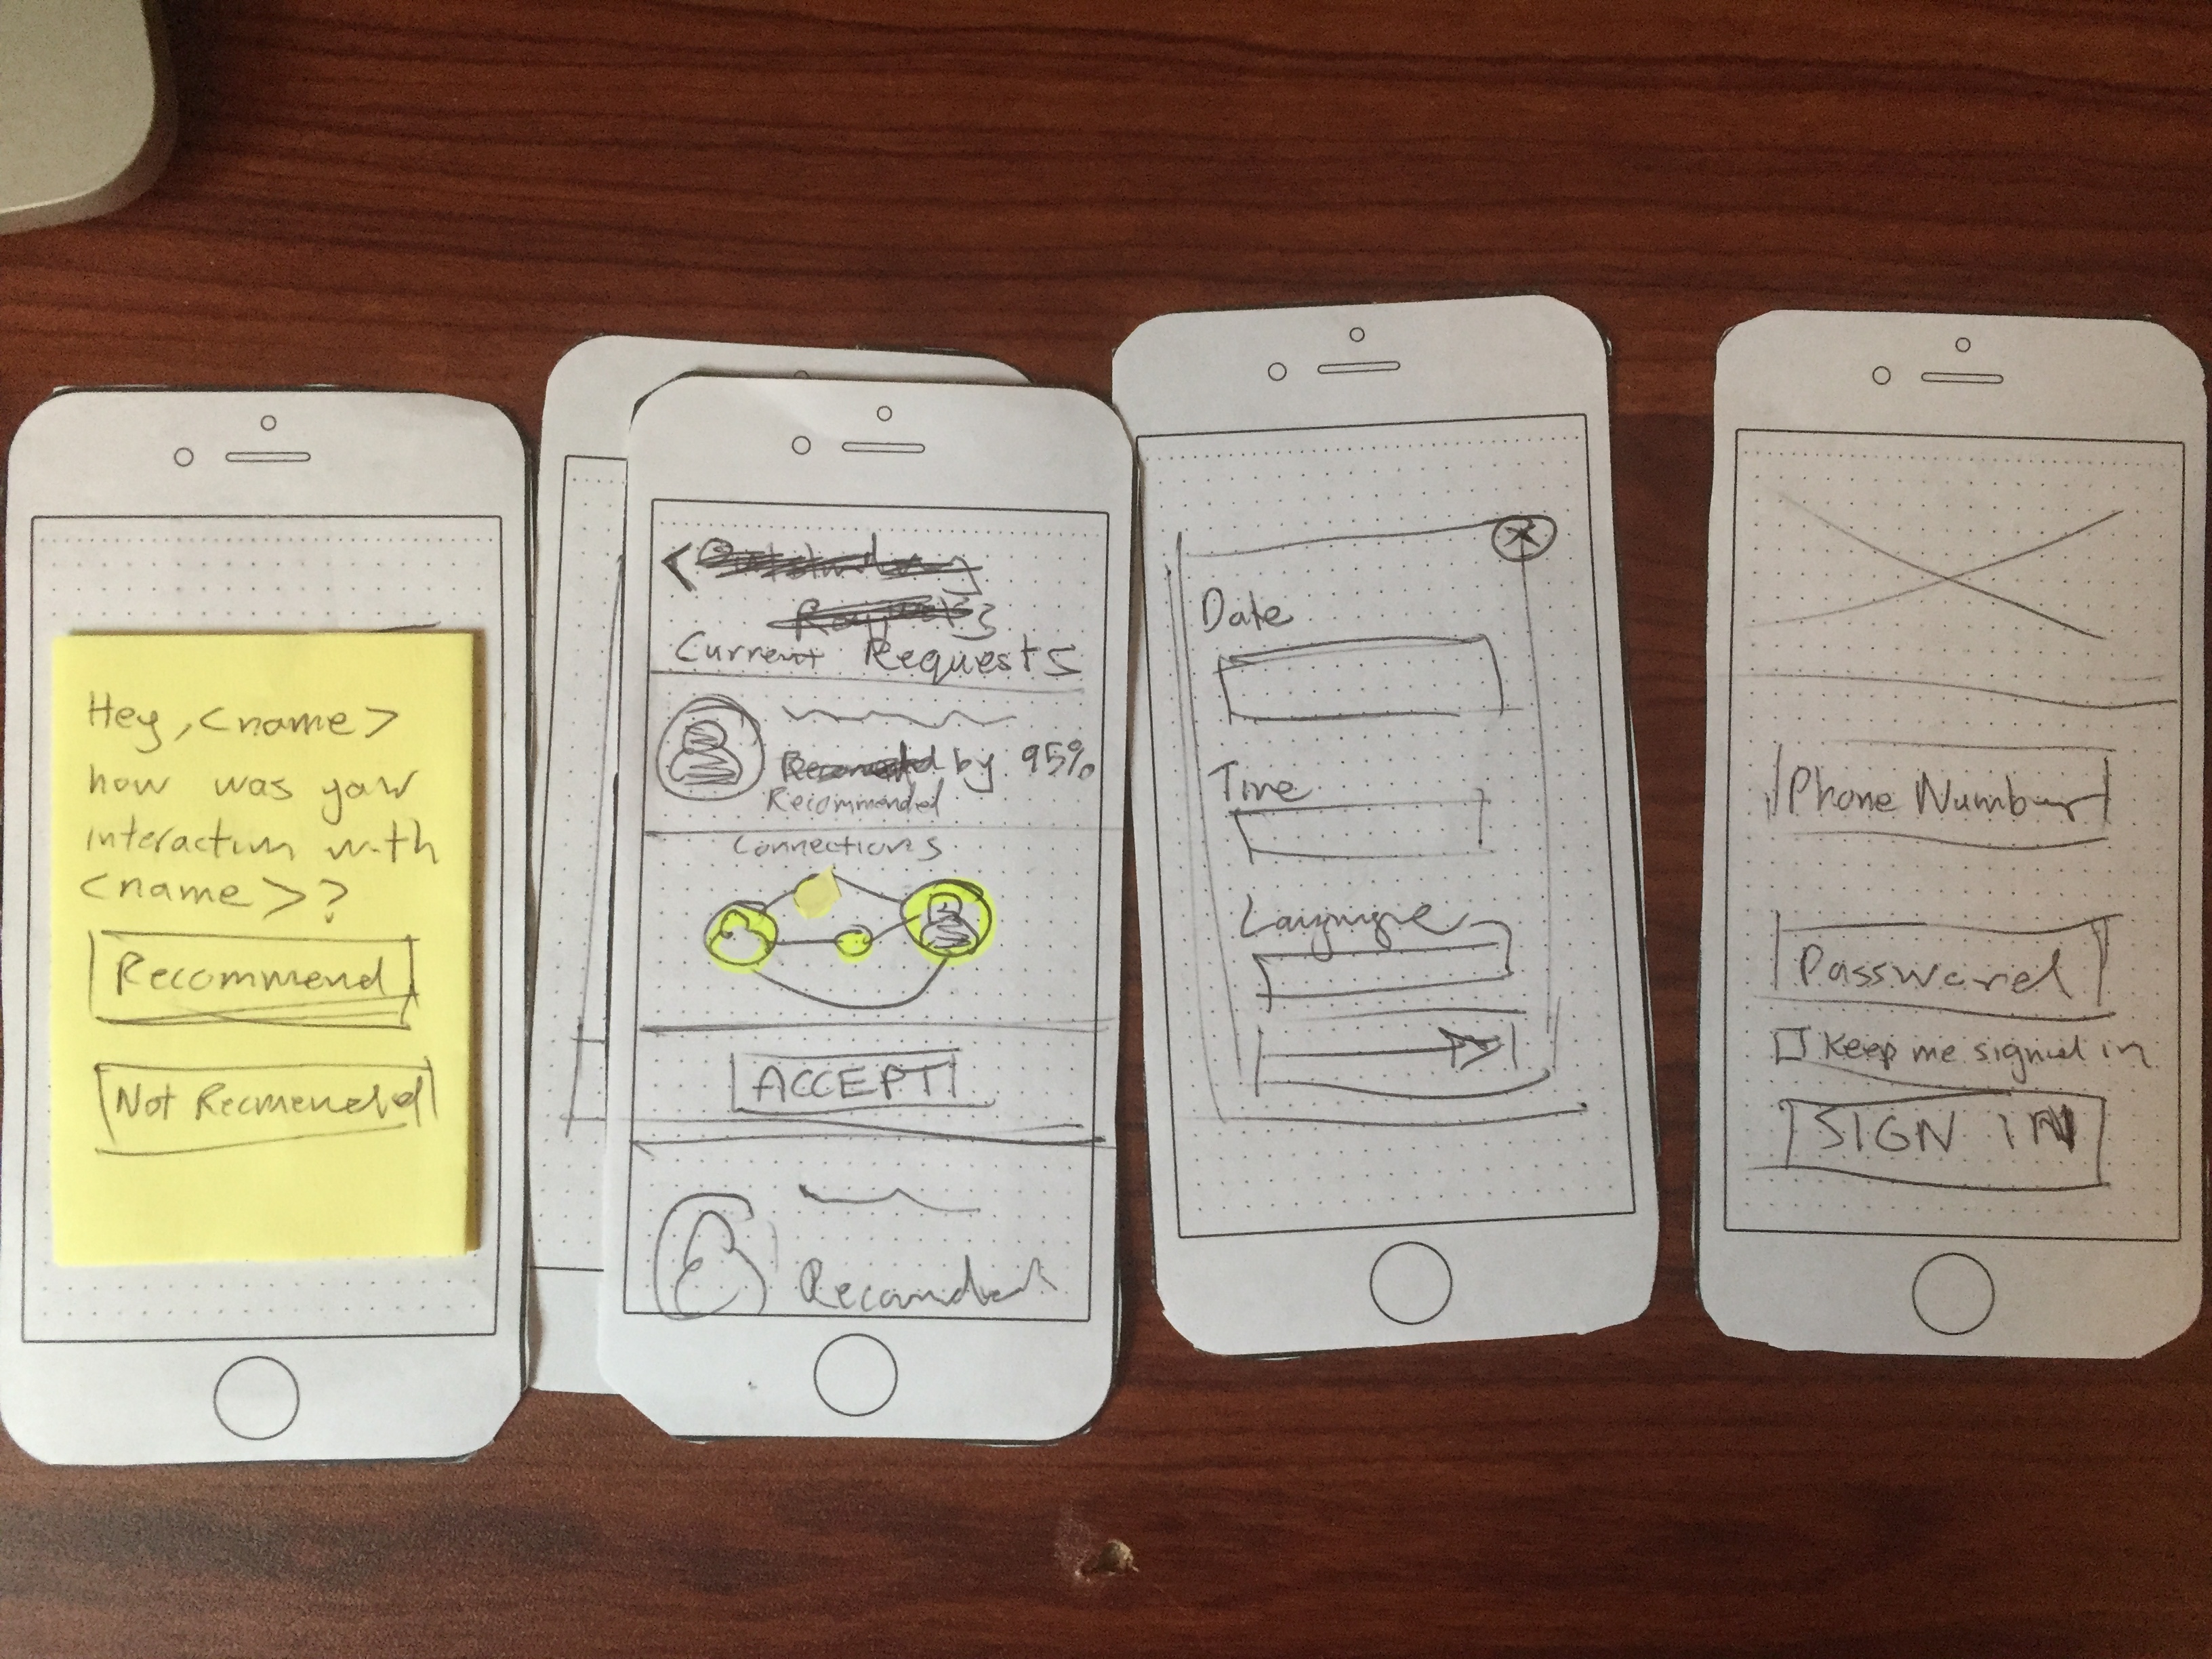 Hey, <name>
how was your
interaction with
<name>?
Recommend
Not Recmended
<
Current Requests
by 95%
Recommended
Connections
ACCEPT
Date
Time
Phone Number
Password
Keep me signed in
SIGN IN